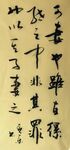 可妻也雖在縲
絏之中非其罪
也以其子妻之